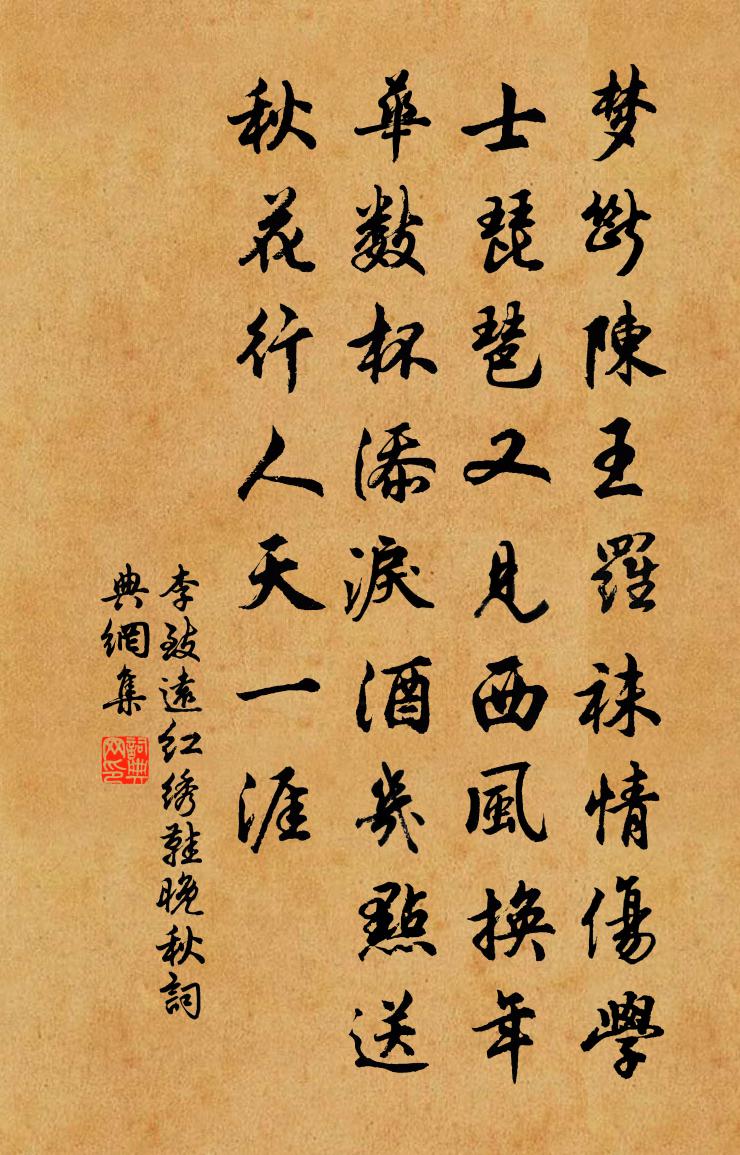 梦斷陳王羅袜情傷學
士琵琶又見西風換年
華數杯添淚酒幾點送
秋花行人天一涯
李致遠红绣鞋晚秋詞
典網集
詞典網印